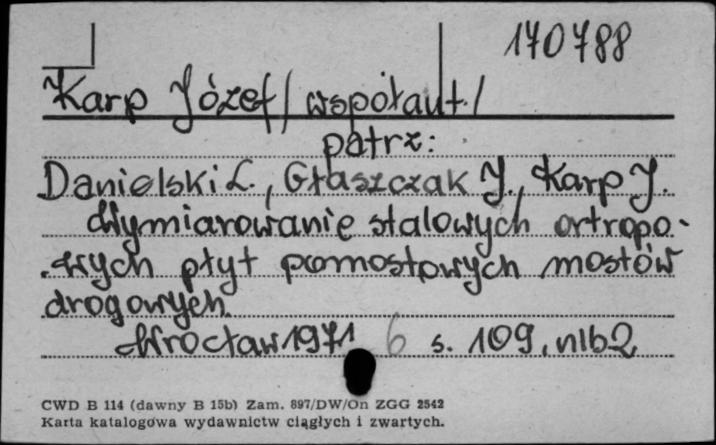 170788
Karp Józef/współaut./
patrz:
Danielski L., Głaszczak J., Karp J.
Wymiarowanie stalowych ortropo-
wych płyt pomostowych mostów
drogowych.
Wrocław 1971 6 s. 109, nlb 2
CWD B 114 (dawny B 15b) Zam. 897/DW/On ZGG 2542
Karta katalogowa wydawnictw ciągłych i zwartych.